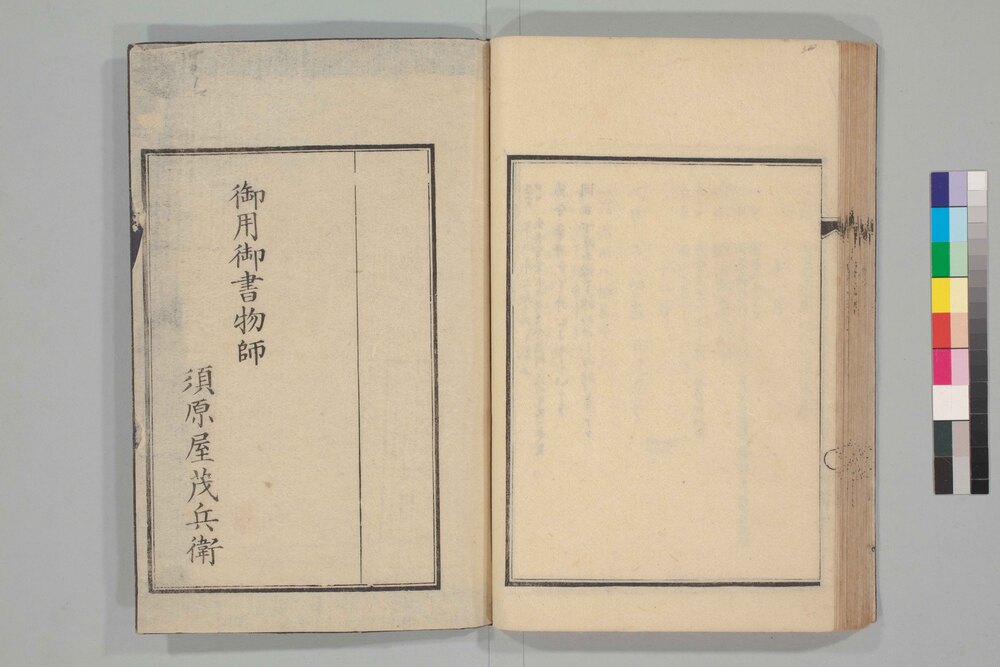 御用御書物師
須原屋茂兵衛